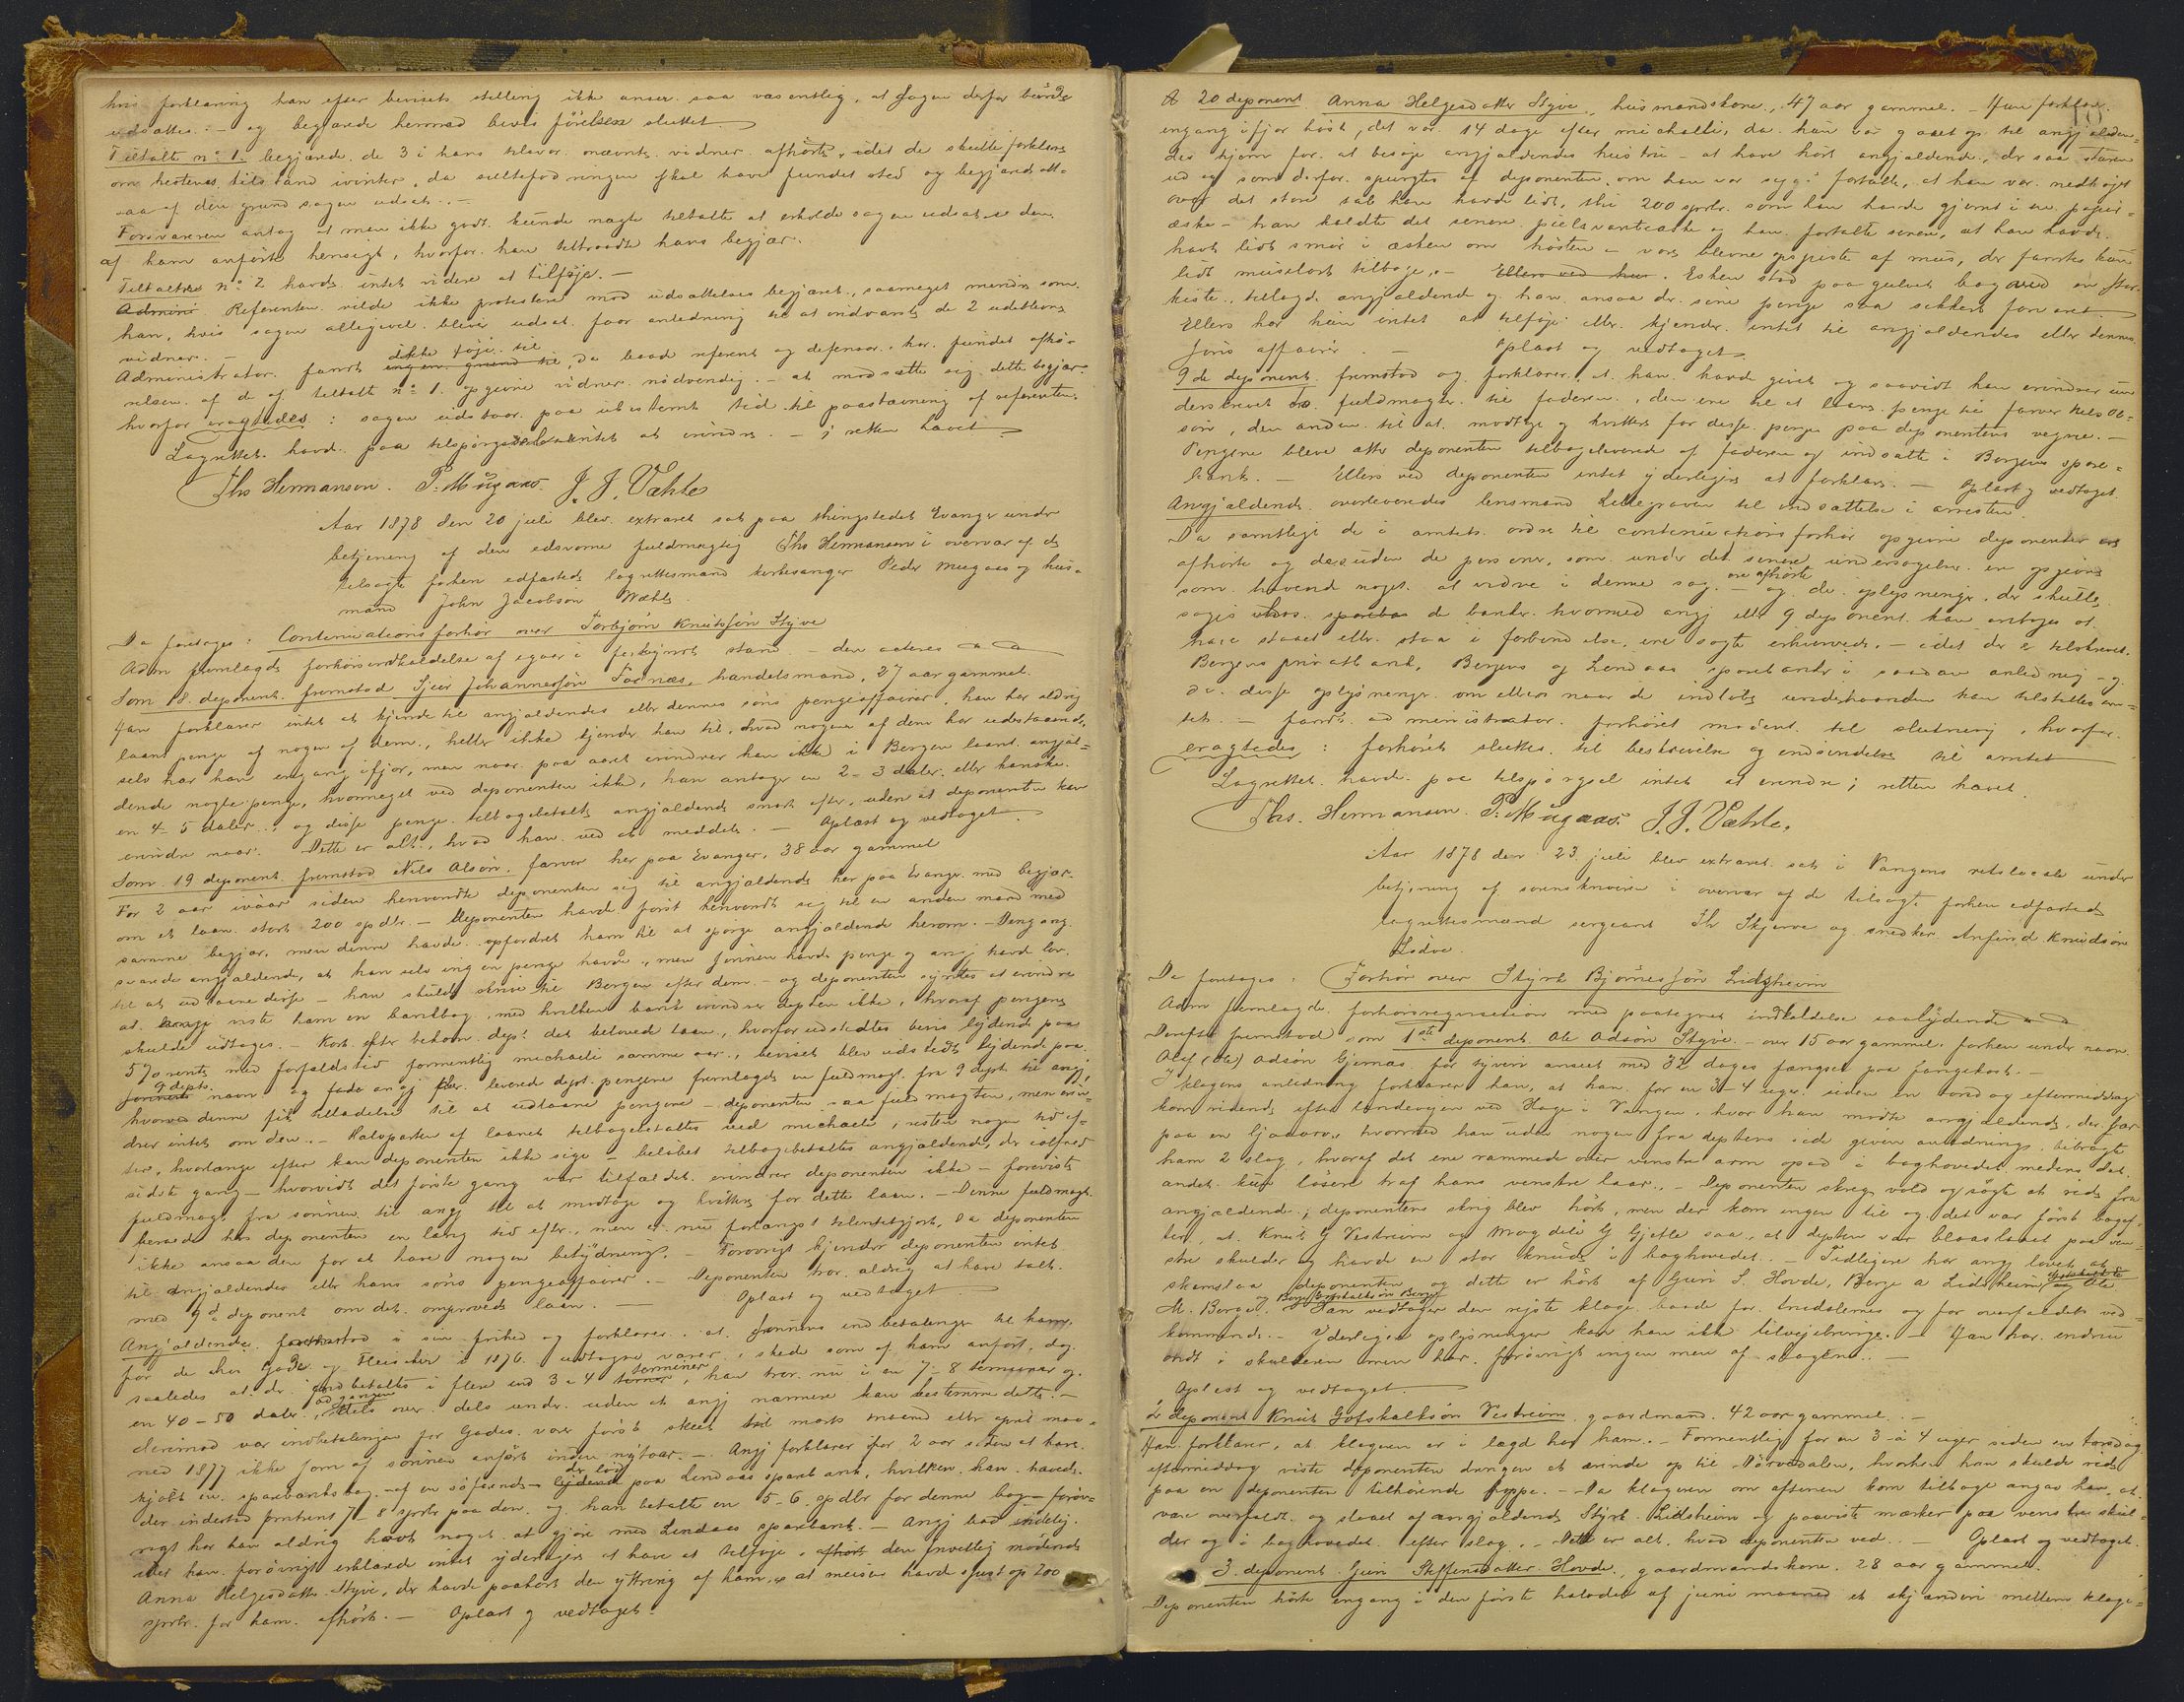 hvis forklaring han efter bevisets stilling ikke anser saa væsentlig, at sagen derfor burde
udsættes. – og begjærede hermed bevis førelsen sluttet.
Tiltalte no 1. begjærede de 3 i hans tilsvar nævnte vidner afhørte, idet de skulle forklare
om hestenes tilstand ivinter, da sultefodringen skal have fundet sted og begjærede alt-
saa af den grund sagen udsat. –
Forsvareren antog at man ikke godt kunde nægte tiltalte at erholde sagen udsat i den
af ham anførte hensigt, hvorfor han tiltraadte hans begjær.
Tiltaltes no 2 havde intet videre at tilføje. –
Admini Referenten vilde ikke protestere mod udsættelses begjæret, saameget mindre som
han, hvis sagen alligevel bliver udsat faar anledning til at indvarsle de 2 udeblevne
vidner. –
Administrator fandt ikke føje til ingen grund til, da baade referent og defensor har fundet afhø-
relsen af de af tiltalte no 1. opgivne vidner nødvendig. – at modsætte sig dette begjær.
hvorfor eragtedes: sagen udstaar paa ubestemt tid til paastævning af referenten.
Lagrettet havde paa tilspørgsel intet at erindre. – i retten hævet.
Ths Hermansen. P. Mügaas. J. J. Væhle
Aar 1878 den 20 juli blev extraret sat paa thingstedet Evanger under
betjening af den edsvorne fuldmægtig Ths Hermansen i overvær af de
tilsagte forhen edfæstede lagrettesmænd kirkesanger Peder Mugaas og hus-
mand John Jacobsøn Væhle.
Da foretoges: Continuationsforhør over Torbjørn Knutsøn Styve
Adm fremlagde forhørsindkaldelse af egner i forkyndt stand – den acteres
Som 18. deponent fremstod Sjur Johannessøn Fornæs, handelsmand, 27 aar gammel.
Han forklarer intet at kjende til angjældendes eller dennes søns pengeaffairer, han har aldrig
laant penge af nogen af dem, heller ikke kjender han til, hvad nogen af dem har udestaaende,
selv har han engang ifjor, men naar paa aaret erindrer han ikke i Bergen laant angjæl-
dende nogle penge, hvormeget ved deponenten ikke, han antager en 2-3 daler eller kanske
en 4-5 daler, og disse penge tilbagebetalte angjældende snart efter, uden at deponenten kan
erindre naar. Dette er alt, hvad han ved at meddele. – Oplæst og vedtaget.
Som 19 deponent fremstod Nils Alsøn, farver her paa Evanger, 38 aar gammel
For 2 aar ivaar siden henvendte deponenten sig til angjældende her paa Evanger med begjær
om et laan stort 200 spdlr. – Deponenten havde først henvendt sig til en anden mand med
samme begjær, men denne havde opfordret ham til at spørge angjældende herom. – Dengang
svarede angjældende, at han selv ingen penge havde, men sønnen havde penge og angj havde lov
til at udlaane disse – han skulde skrive til Bergen efter dem. – og deponenten syntes at erindre
at angj viste ham en bankbog, med hvilken bank erindrer depten ikke, hvoraf pengene
skulde udtages. – Kort efter bekom dept det belovede laan, hvorfor udstedtes bevis lydende paa
5 % rente med forfaldstid formentlig michaeli samme aar, beviset blev udstedt lydende paa
sønnens 9 depts. navn og fader angj leverede dept pengene fremlagde en fuldmagt fra 9 dept til angj,
hvorved denne fik tilladelse til at udlaane pengene – deponenten saa fuldmagten, men erin-
drer intet om den. – Halvparten af laanet tilbagebetaltes ved michaeli, resten nogen tid ef-
ter, hvorlænge efter kan deponenten ikke sige – beløbet tilbagebetaltes angjældende, der ialfald
sidste gang – hvorvidt det første gang var tilfældet erindrer deponenten ikke – foreviste
fuldmagt fra sønnen til angj til at modtage og kvittere for dette laan. – Denne fuldmagt
beroede hos deponenten en lang tid efter, men er nu forlængst tilintetgjort, da deponenten
ikke ansaa den for at have nogen betydning. – Forøvrigt kjender deponenten intet
til angjældendes eller hans søns pengeaffairer. – Deponenten tror aldrig at have talt
med 9de deponent om det omprovede laan. – Oplæst og vedtaget.
Angjældende fremstod i sin frihed og forklarer at sønnens indbetalinger til ham,
for de hos Gade og Fleischer i 1876 udtagne varer, skede som af ham anført, dog
saaledes at der indbetaltes i flere end 3 a 4 terminer, han tror nu i en 7-8 terminer og
en 40-50 daler ad gangen, dels over dels under uden at angj nærmere kan bestemme dette. –
derimod var indbetalingen for Gades varer først skeet til marts maaned eller april maa-
ned 1877 ikke som af sønnen anført inden nytaar. – Angj forklarer for 2 aar siden at have
kjøbt en sparebanksbog af en søfarende lydende der lød paa Lindaas sparebank, hvilken han havde
der indestod omtrent 7-8 spdlr paa den og han betalte en 5-6 spdlr for denne bog – forøv-
rigt har han aldrig havt noget at gjøre med Lindaas sparebank. – Angj bad endelig
eller han forøvrigt erklærede intet yderligere at have at tilføje, afhørt den frivillig mødende
Anna Helgesdatter Styve, der havde paahørt den yttring af ham, at musene havde spist op 200
spdlr for ham afhørt. – Oplæst og vedtaget.
18
A 20 deponent Anna Helgesdatter Styve, husmandskone, 47 aar gammel. – Hun forklarer
engang ifjor høst, det var 14 dage efter michaeli, da hun var gaaet op til angjælden-
des hjem for at besøge angjældendes hustru – at have hørt angjældende, der saa daarlig
ud og som derfor spurgtes af deponenten, om han var syg fortælle, at han var nedbøjet
over det store tab han havde lidt, thi 200 spdlr. som han havde gjemt i en papir-
æske – han kaldte det senere og han fortalte senere, at han havde
havt lidt smør i æsken om høsten – vare blevne opspiste af mus, der fandtes kun
lidt muselort tilbage. – Ellers ved hun. Esken stod paa gulvet bag ved en stor
kiste, tillagde angjældende og han ansaa der sine penge saa sikkert forvaret.
Ellers har hun intet at tilføje eller kjender intet til angjældendes eller dennes
søns affairer. – Oplæst og vedtaget.
9de deponent fremstod og forklarer, at han havde givet og saavidt han erindrer un-
derskrevet to fuldmagter til faderen, den ene til at laane penge til farver Nils Al-
søn, den anden til at modtage og kvittere for disse penge paa deponentens vegne. –
Pengene bleve atter deponenten tilbageleverede af faderen og indsatte i Bergens spare-
bank. – Ellers ved deponenten intet yderligere at forklare. – Oplæst og vedtaget.
Angjældende overleveredes lensmand Lillegraven til indsættelse i arresten.
Da samtlige de i amtets ordre til continuationsforhør opgivne deponenter er
afhørte og desuden de personer, som under det senere undersøgelser ere opgivne
som havende noget at vidne i denne sag ere afhørte – og de oplysninger, der skulle
søges hos sparebank de banker hvormed angj eller 9 deponent kan antages at
have staaet eller staa i forbindelse, ere søgte erhvervede, – idet der er tilskrevet
Bergens privatbank, Bergens og Lindaas sparebanker i saadan anledning – og
da disse oplysninger om ellers naar de indløbe underhaanden kan tilstilles am-
tet. – fandt administrator forhøret modent til slutning, hvorfor
eragtedes: forhøret sluttes til beskrivelse og indsendelse til amtet
Lagrettet havde paa tilspørgsel intet at erindre; retten hævet.
Ths. Hermansen. P. Mügaas. J. J. Væhle.
Aar 1878 den 23 juli blev extraret sat i Vangens retslocale under
betjening af sorenskriveren i overvær af de tilsagte forhen edfæstede
lagrettesmænd sergeant Th Skjerve og snedker Anfind Knudsøn
Lødve.
Da foretoges: Forhør over Styrk Bjørnessøn Lidsheim
Adm fremlagde forhørsrequisition med paategnet indkaldelse saalydende
Derefter fremstod som 1ste deponent Ole Adsøn Styve. – over 15 aar gammel. forhen under navn
Olaf (Ole) Adsøn Gjernæs for tyveri anseet med 32 dages fængsel paa fangekost. –
I klagens anledning forklarer han, at han for en 3-4 uger siden en torsdag eftermiddag
kom ridende efter landevejen ved Hage i Vangen, hvor han mødte angjældende, der for
paa en ljaaorv hvormed han uden nogen fra deptens side given anledning bibragte
ham 2 slag, hvoraf det ene rammede over venstre arm opad i baghovedet medens det
andet kun løsere traf hans venstre laar. – Deponenten skreg vold og søgte at ride fra
angjældende; deponentens skrig blev hørt, men der kom ingen til og det var først bagef-
ter, at Knut G Vestreim og Magdeli G Gjelle saa, at depten var blaaslaaet paa ven-
stre skulder og havde en stor knude i baghovedet. – Tidligere har angj lovet at
skamslaa deponenten og dette er hørt af Guri S. Hovde, Børge A Lidsheim, og Ole
M. Borge. og Børge Gotskalksøn Berge Han vedtager den rejste klage baade for trudslernes og for overfaldets ved-
kommende. – Yderligere oplysninger kan han ikke tilvejebringe. – Han har endnu
ondt i skulderen men har forøvrigt ingen men af slagene. –
Oplæst og vedtaget.
2 deponent Knut Gotskalksøn Vestreim, gaardmand, 42 aar gammel. –
Han forklarer, at klageren er i lægd hos ham. – Formentlig for en 3-à 4 uger siden en torsdag
eftermiddag viste deponenten drengen et ærinde op til Dørvedalen, hvorhen han skulde ride
paa en deponenten tilhørende hoppe. – Da klageren om aftenen kom tilbage angav han, at
være overfaldt og slaaet af angjældende Styrk Lidsheim og paaviste mærker paa venstre skul-
der og i baghovedet efter slag. – Dette er alt, hvad deponenten ved. – Oplæst og vedtaget.
3 deponent Guri Steffensdatter Hovde, gaardmandskone, 28 aar gammel.
Deponenten hørte engang i den første halvdel af juni maaned et skjænderi mellem klage-